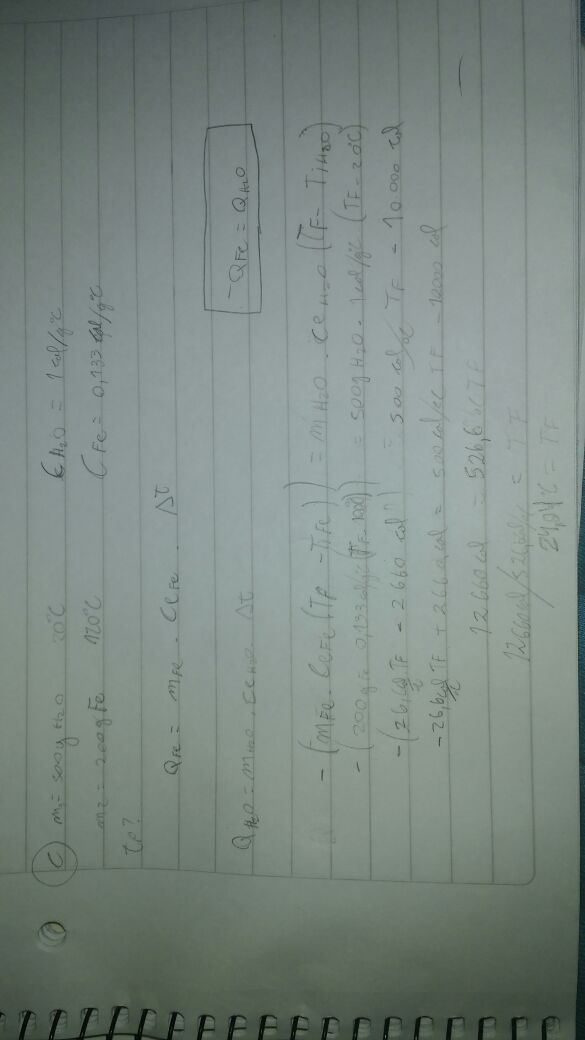 C m1=500g H2O 20°C C H2O = 1 cal/g°C
m2 = 200g Fe 120°C C Fe = 0,133 cal/g°C
TF?
QFe = mFe . CeFe . Δt
QH2O = mH2O . CeH2O Δt
-QFe = QH2O
-(mFe . CeFe (TF - TiFe)) = mH2O . CeH2O (TF - TiH2O)
-(200gFe 0,133 cal/g°C (TF-100)) = 500g H2O . 1 cal/g°C (TF-20°C)
-(26,6 cal/°C TF - 2660 cal) = 500 cal/°C TF - 10.000 cal
-26,6 cal/°C TF + 2660 cal = 500 cal/°C TF - 10000 cal
12660 cal = 526,6 °C TF
12660 cal/526,6 cal/°C = TF
24,04 °C = TF